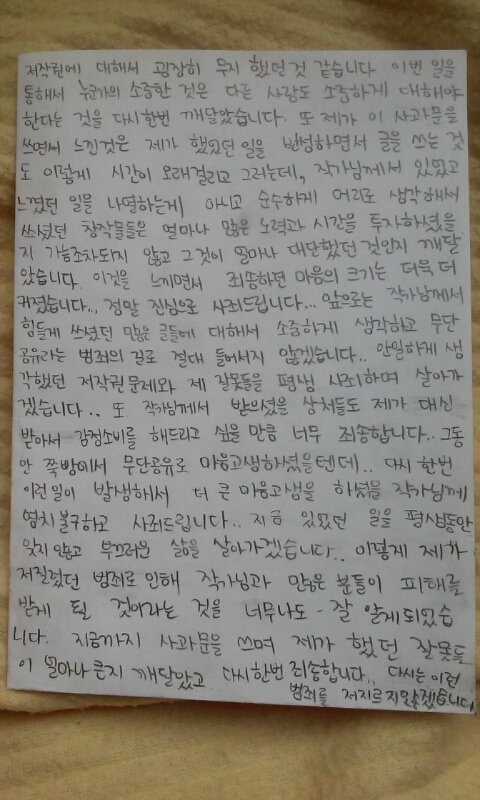 저작권에 대해서 굉장히 무지 했던것 같습니다 이번 일을
통해서 누군가의 소중한 것은 다른 사람도 소중하게 대해야
한다는 것을 다시한번 깨달았습니다. 또 제가 이 사과문을
쓰면서 느낀것은 제가 했었던 일을 반성하면서 글을 쓰는 것
도 이렇게 시간이 오래걸리고 그러는데, 작가님께서 있었고
느꼈던 일을 나열하는게 아니고 순수하게 머리로 생각해서
쓰셨던 창작물들은 얼마나 많은 노력과 시간을 투자하셨을
지 가늠조차되지 않고 그것이 얼마나 대단했던 것인지 깨달
았습니다. 이것을 느끼면서 죄송하던 마음의 크기는 더욱 더
커졌습니다... 정말 진심으로 사죄드립니다... 앞으로는 작가님께서
힘들게 쓰셨던 많은 글들에 대해서 소중하게 생각하고 무단
공유라는 범죄의 길로 절대 들어서지 않겠습니다.. 안일하게 생
각했던 저작권문제와 제 잘못들을 평생 사죄하며 살아가
겠습니다.. 또 작가님께서 받으셨을 상처들도 제가 대신
받아서 감정소비를 해드리고 싶을 만큼 너무 죄송합니다.. 그동
안 쪽방에서 무단공유로 마음고생하셨을텐데.. 다시 한번
이런일이 발생해서 더 큰 마음고생을 하셨을 작가님께
염치 불구하고 사죄드립니다.. 지금 있었던 일을 평생동안
잊지않고 부끄러운 삶을 살아가겠습니다.. 이렇게 제가
저질렀던 범죄로 인해 작가님과 많은 분들이 피해를
받게 될 것이라는 것을 너무나도 잘 알게되었습
니다. 지금까지 사과문을 쓰며 제가 했던 잘못들
이 얼마나 큰지 깨달았고 다시한번 죄송합니다.. 다시는 이런
범죄를 저지르지않겠습니다